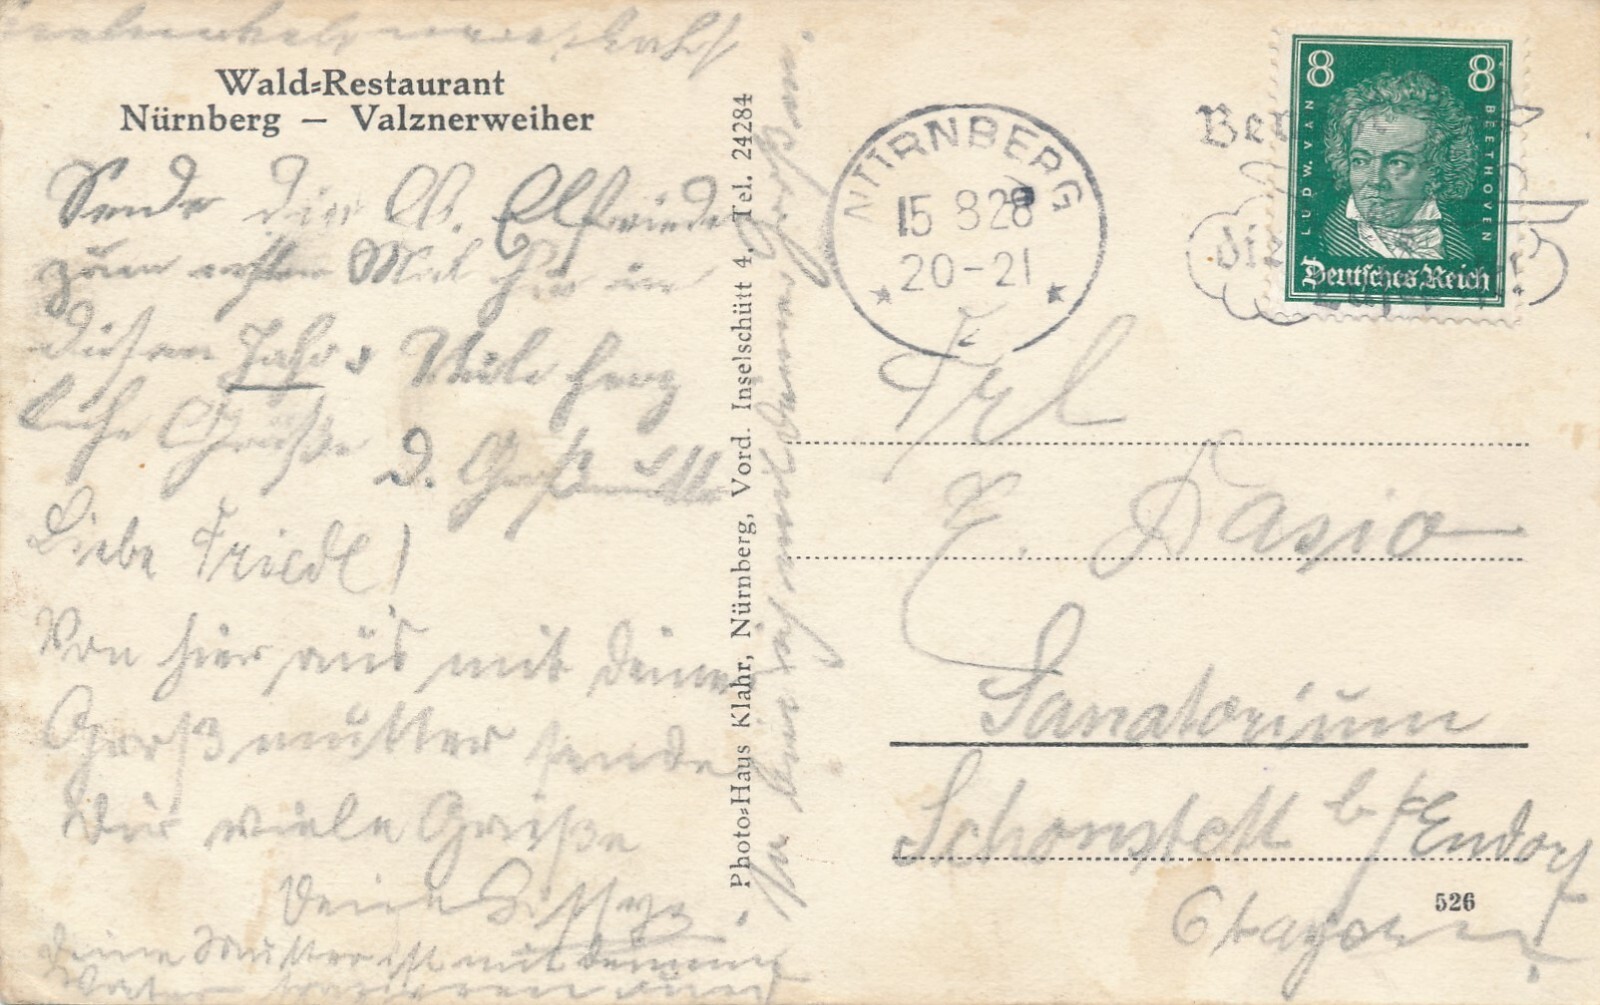 Wald=Restaurant
Nürnberg — Valznerweiher
Sende dir lb. Elfriede
zum ersten Mal hier in
diesem Jahr. Viele herz
liche Grüße
D. Großmutter
Liebe Friedl!
Von hier aus mit deiner
Großmutter sende
Dir viele Grüße
Deine
Deine Mutter ist mit deinem
Vater spazieren
Photo=Haus Klahr, Nürnberg, Vord. Inselschütt 4, Tel. 24284
NÜRNBERG
15 8 28
20-21
8 8
LUDW. VAN BEETHOVEN
Deutsches Reich
die
Frl
E. Dasio
Sanatorium
Schonstett b/Endorf
Obayern
526